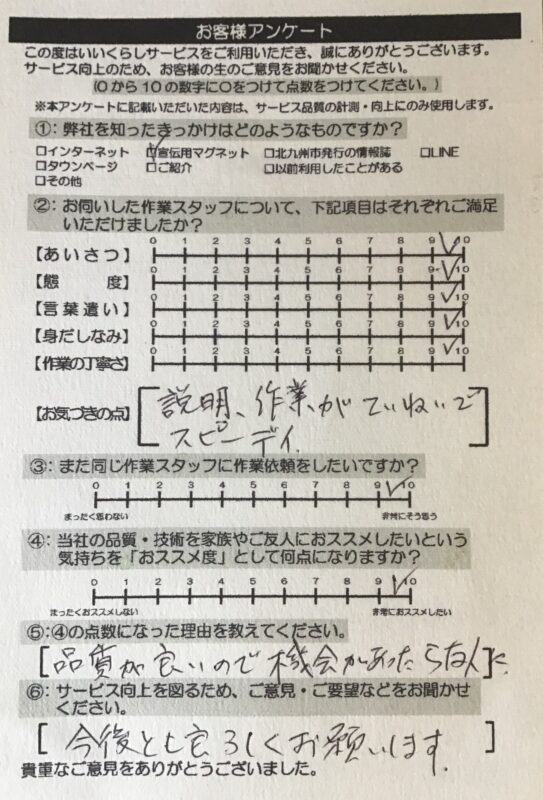 お客様アンケート
この度はいいくらしサービスをご利用いただき、誠にありがとうございます。
サービス向上のため、お客様の生のご意見をお聞かせください。
(0から10の数字に○をつけて点数をつけてください。)
※本アンケートに記載いただいた内容は、サービス品質の計測・向上にのみ使用します。
①：弊社を知ったきっかけはどのようなものですか？
□インターネット ☑宣伝用マグネット □北九州市発行の情報誌 □LINE
□タウンページ □ご紹介 □以前利用したことがある
□その他
②：お伺いした作業スタッフについて、下記項目はそれぞれご満足
いただけましたか？
0 1 2 3 4 5 6 7 8 9 10
【あいさつ】
0 1 2 3 4 5 6 7 8 9 10
【態度】
0 1 2 3 4 5 6 7 8 9 10
【言葉遣い】
0 1 2 3 4 5 6 7 8 9 10
【身だしなみ】
0 1 2 3 4 5 6 7 8 9 10
【作業の丁寧さ】
【お気づきの点】
説明、作業がていねいで
スピーディ.
③：また同じ作業スタッフに作業依頼をしたいですか？
0 1 2 3 4 5 6 7 8 9 10
まったく思わない 非常にそう思う
④：当社の品質・技術を家族やご友人におススメしたいという
気持ちを「おススメ度」として何点になりますか？
0 1 2 3 4 5 6 7 8 9 10
まったくおススメしない 非常におススメしたい
⑤：④の点数になった理由を教えてください。
[品質が良いので機会があったら友人]に.
⑥：サービス向上を図るため、ご意見・ご要望などをお聞かせ
ください。
[今後とも宜ろしくお願いします.]
貴重なご意見をありがとうございました。